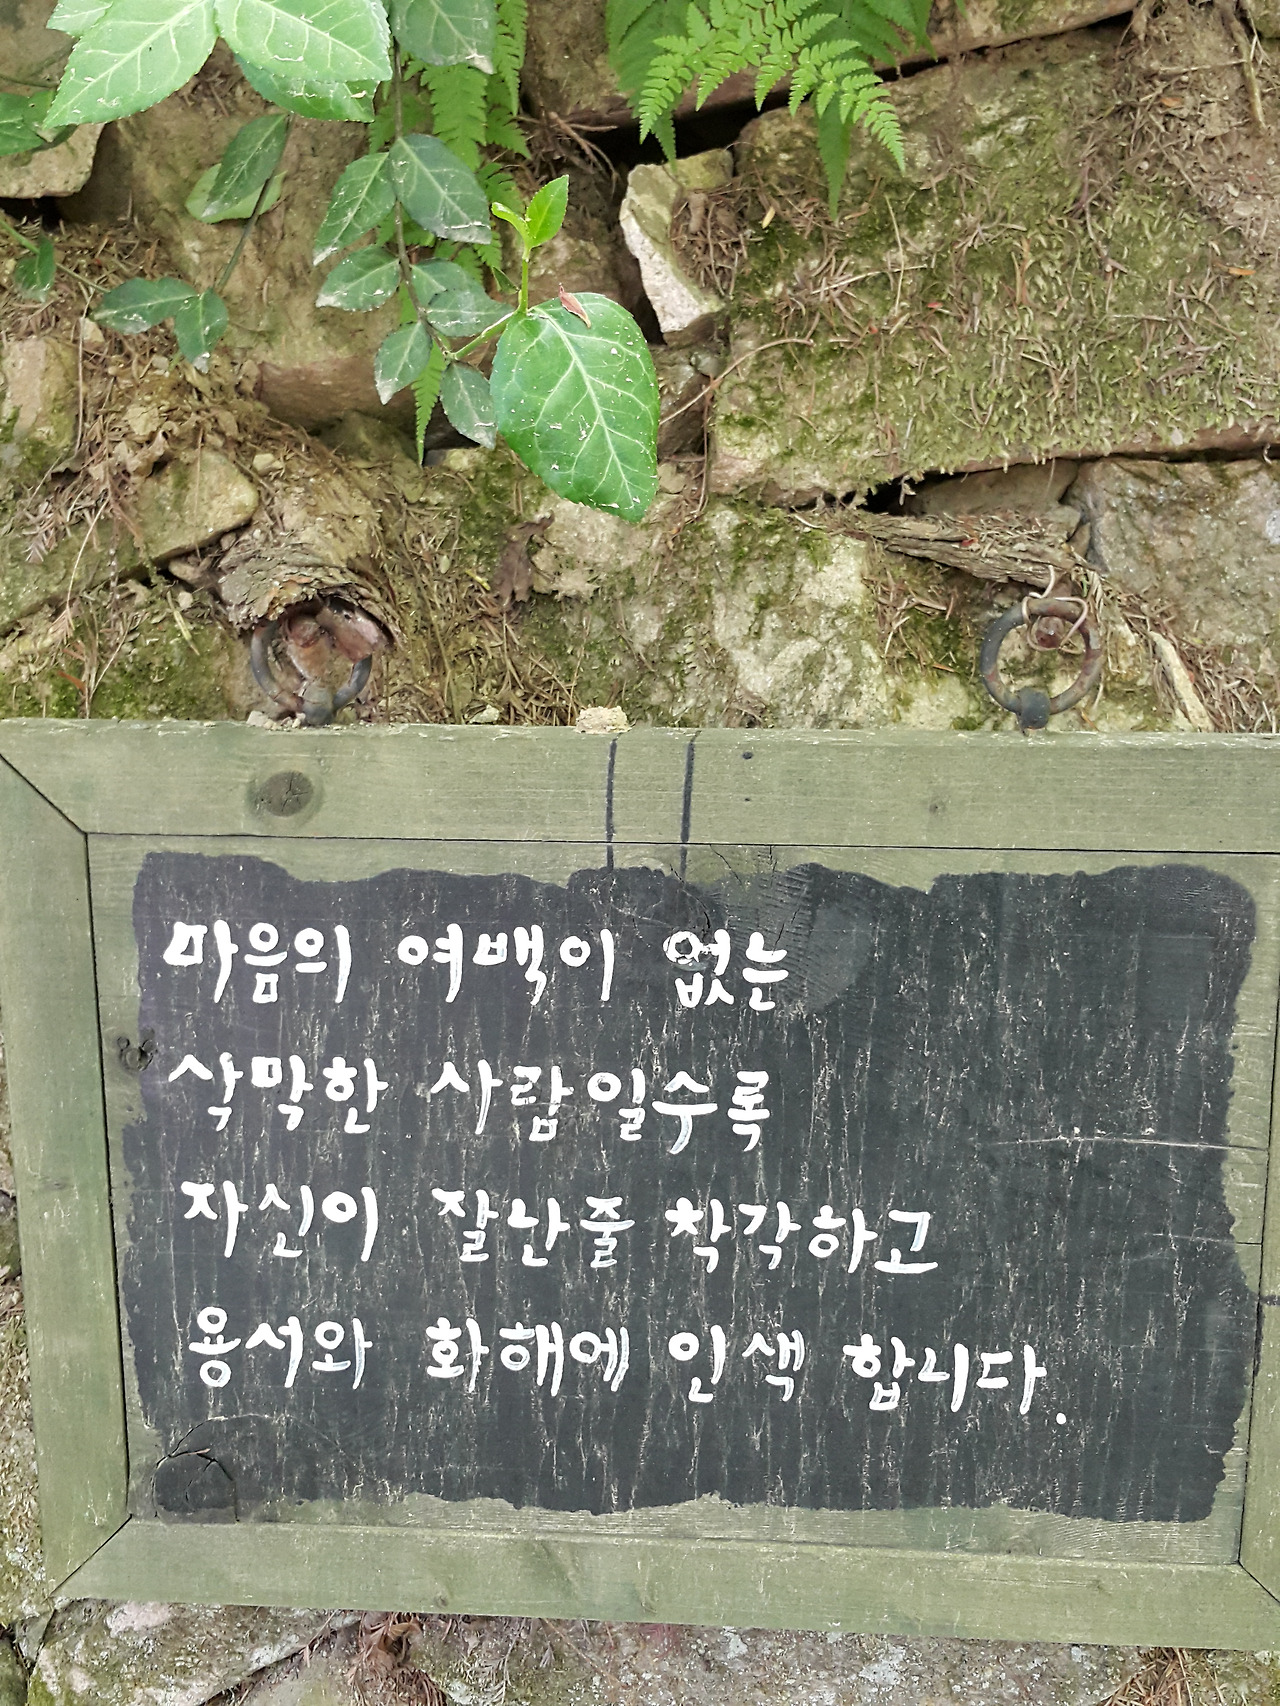 마음의 여백이 없는
삭막한 사람일수록
자신이 잘난줄 착각하고
용서와 화해에 인색 합니다.